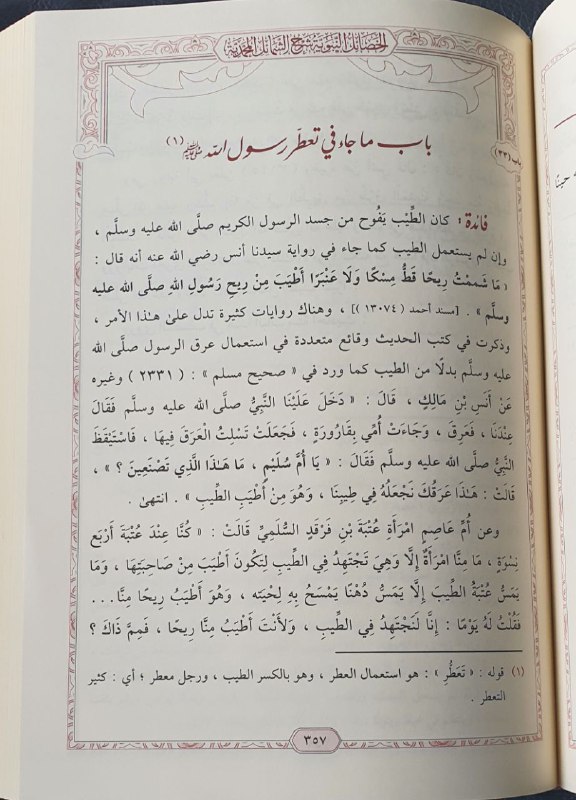 الخصائل النبوية شرح الشمائل المحمدية
باب (٣٣)
باب ما جاء في تعطر رسول الله ﷺ (١)
فائدة : كان الطِّيْب يَفُوح من جسد الرسول الكريم صلَّى الله عليه وسلَّم ،
وإن لم يستعمل الطيب كما جاء في رواية سيدنا أنس رضي الله عنه أنه قال :
« مَا شَمِمْتُ رِيحًا قَطُّ مِسْكًا وَلَا عَنْبَرًا أَطْيَبَ مِنْ رِيحِ رَسُولِ اللهِ صلَّى الله عليه
وسلَّم » . [مسند أحمد ( ١٣٠٧٤ )] ، وهناك روايات كثيرة تدل علىٰ هـٰذا الأمر ،
وذكرت في كتب الحديث وقائع متعددة في استعمال عرق الرسول صلَّى الله
عليه وسلَّم بدلًا من الطيب كما ورد في « صحيح مسلم » : ( ٢٣٣١ ) وغيره
عَنْ أَنَسِ بْنِ مَالِكٍ ، قَالَ : « دَخَلَ عَلَيْنَا النَّبِيُّ صلَّى الله عليه وسلَّم فَقَالَ
عِنْدَنَا ، فَعَرِقَ ، وَجَاءَتْ أُمِّي بِقَارُورَةٍ ، فَجَعَلَتْ تَسْلِتُ الْعَرَقَ فِيهَا ، فَاسْتَيْقَظَ
النَّبِيُّ صلَّى الله عليه وسلَّم فَقَالَ : « يَا أُمَّ سُلَيْمٍ ، مَا هَـٰذَا الَّذِي تَصْنَعِينَ ؟ » ،
قَالَتْ : هَـٰذَا عَرَقُكَ نَجْعَلُهُ فِي طِيبِنَا ، وَهُوَ مِنْ أَطْيَبِ الطِّيبِ » . انتهىٰ .
وعن أُمِّ عَاصِمٍ امْرَأَةِ عُتْبَةَ بْنِ فَرْقَدٍ السُّلَمِيِّ قَالَتْ : « كُنَّا عِنْدَ عُتْبَةَ أَرْبَعَ
نِسْوَةٍ ، مَا مِنَّا امْرَأَةٌ إِلَّا وَهِيَ تَجْتَهِدُ فِي الطِّيبِ لِتَكُونَ أَطْيَبَ مِنْ صَاحِبَتِهَا ، وَمَا
يَمَسُّ عُتْبَةُ الطِّيبَ إِلَّا يَمَسُّ دُهْنًا يَمْسَحُ بِهِ لِحْيَتَه ، وَهُوَ أَطْيَبُ رِيحًا مِنَّا ...
فَقُلْتُ لَهُ يَوْمًا : إِنَّا لَنَجْتَهِدُ فِي الطِّيبِ ، وَلَأَنْتَ أَطْيَبُ مِنَّا رِيحًا ، فَمِمَّ ذَاكَ ؟
(١) قوله : « تَعَطُّر » : هو استعمال العطر ، وهو بالكسر الطيب ، ورجل معطر ؛ أي : كثير
التعطر .
٣٥٧